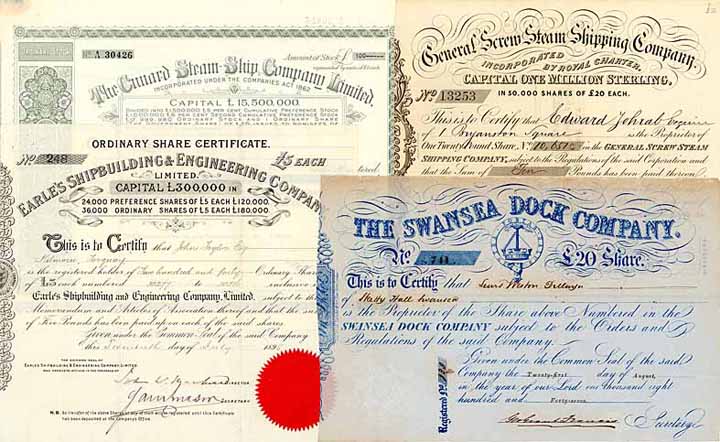 ORDINARY STOCK
No. A 30426
Amount of Stock £ 100
The Cunard Steam-Ship Company, Limited.
INCORPORATED UNDER THE COMPANIES ACT 1862
CAPITAL £15,500,000
General Screw Steam Shipping Company.
INCORPORATED BY ROYAL CHARTER.
CAPITAL ONE MILLION STERLING.
IN 50,000 SHARES OF £20 EACH.
No. 13253
This is to Certify that Edward Zohrab Esquire
of 1 Bryanston Square is the Proprietor of
One Twenty Pound Share, No. in the GENERAL SCREW STEAM
SHIPPING COMPANY, subject to the Regulations of the said Corporation and
that the Sum of Ten Pounds has been paid thereon
ORDINARY SHARE CERTIFICATE.
No. 248 £5 EACH
EARLE'S SHIPBUILDING & ENGINEERING COMPANY
LIMITED.
CAPITAL £300,000 IN
24,000 PREFERENCE SHARES OF £5 EACH £120,000.
36,000 ORDINARY SHARES OF £5 EACH £180,000.
This is to Certify that John Taylor Esq
is the registered holder of Two hundred and forty Ordinary Shares
of £5 each numbered to inclusive
Earle's Shipbuilding and Engineering Company, Limited, subject to the
Memorandum and Articles of Association thereof and that the sum
of Five Pounds has been paid up on each of the said shares
Given under the Common Seal of the said Company
this day of July 189
THE COMMON SEAL OF
EARLE'S SHIPBUILDING & ENGINEERING COMPANY LIMITED
DIRECTOR
SECRETARY
N.B. No transfer of the above Shares or any of them will be registered until this Certificate
has been deposited at the Company's Office.
THE SWANSEA DOCK COMPANY.
No. 741. £20 Share.
This is to Certify that Lewis Weston Dillwyn
of Sketty Hall Swansea
is the Proprietor of the Share above Numbered in the
SWANSEA DOCK COMPANY subject to the Orders and
Regulations of the said Company.
Given under the Common Seal of the said
Company the Twenty-first day of August,
in the year of our Lord one thousand eight
hundred and Forty-
Registered No.
Geo Grant Francis Secretary